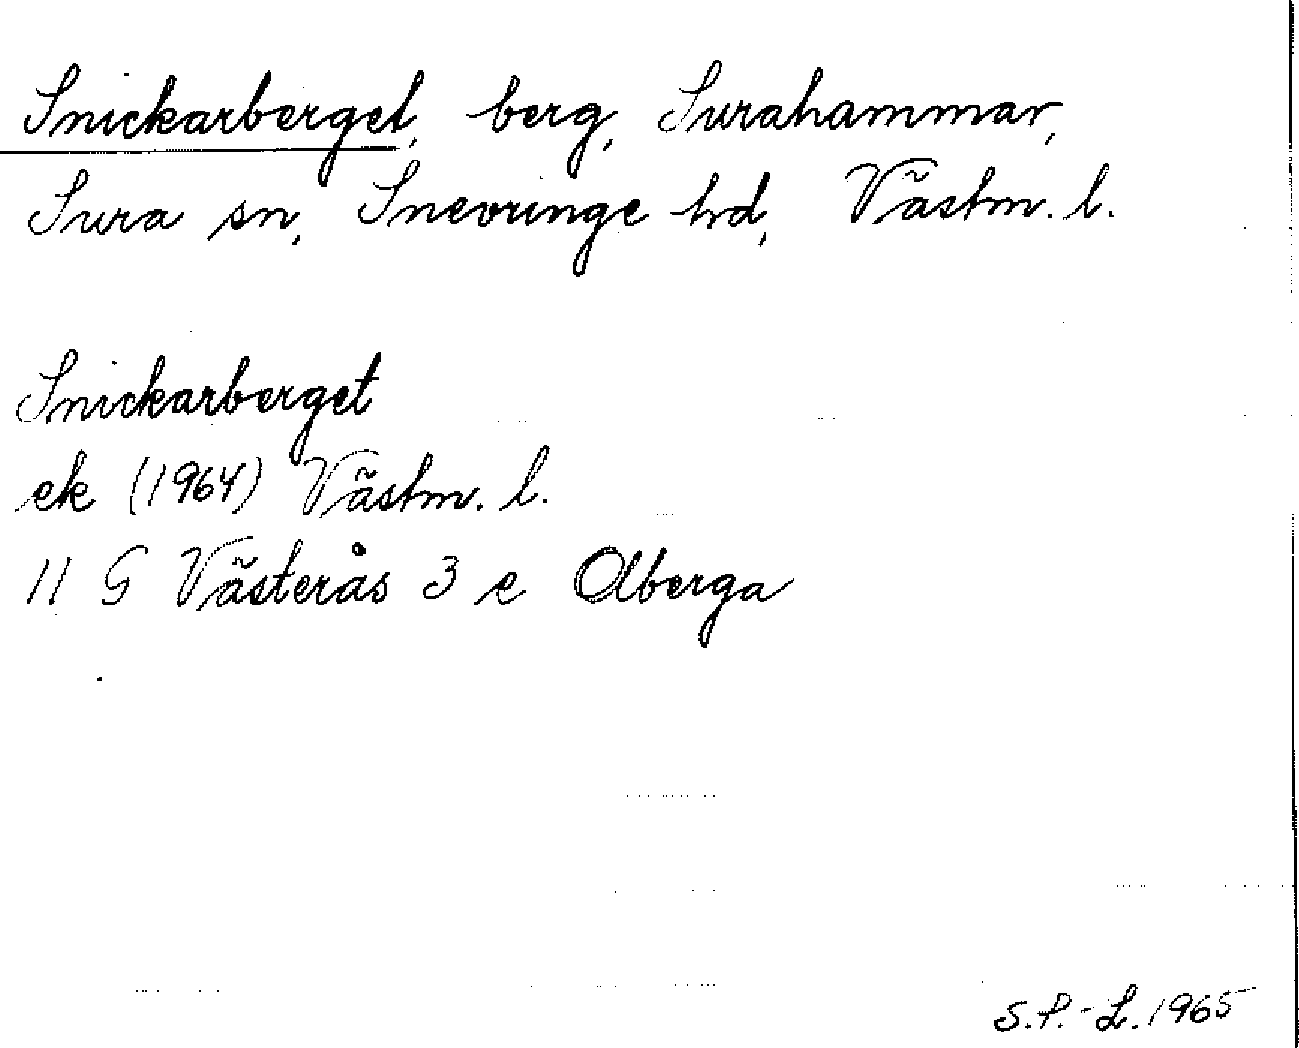 Snickarberget, berg, Surahammar,
Sura sn, Snevringe hd, Västm. l.
Snickarberget
ek (1964) Västm. l.
11 G Västerås 3 e Olberga
S.P.-L. 1965